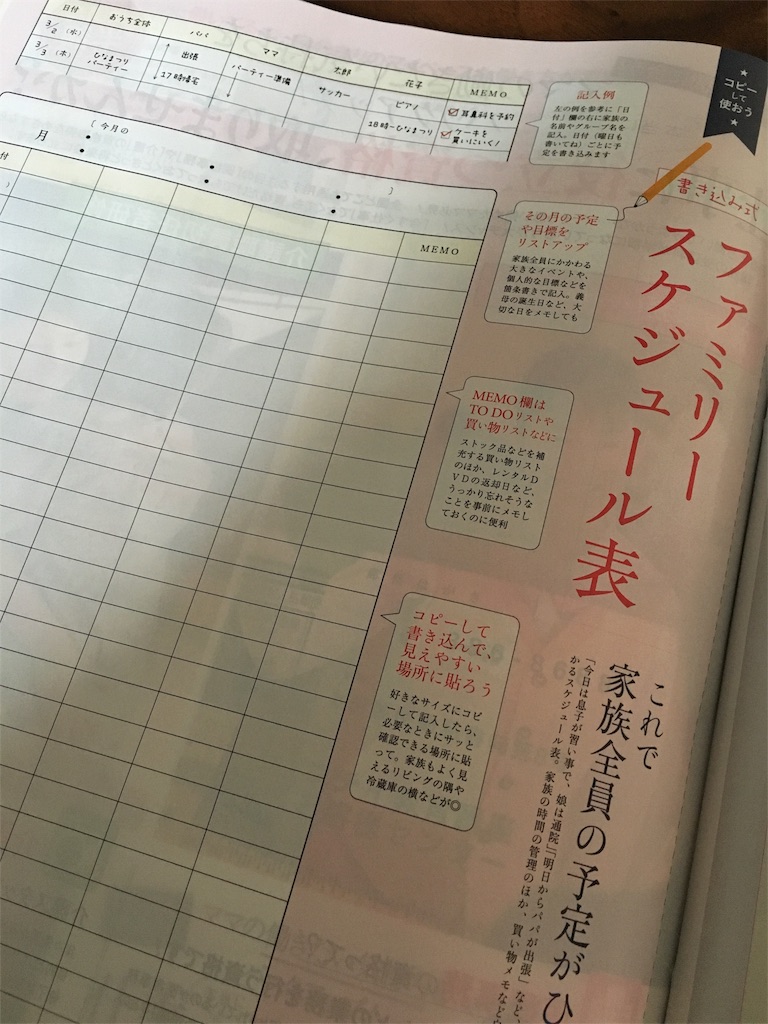 コピー
して
使おう
書き込み式
ファミリー
スケジュール表
これで
家族全員の予定がひ
「今日は息子が習い事で、娘は通院」「明日からパパが出張」など、
かるスケジュール表。家族の時間の管理のほか、買い物メモなど
日付 おうち全体 パパ ママ 太郎 花子 MEMO
3/2(水) 出張 パーティー準備 サッカー ピアノ 耳鼻科を予約
3/3(木) ひなまつり
パーティー 17時帰宅 18時〜ひなまつり ケーキを
買いにいく!
記入例
左の例を参考に「日
付」欄の右に家族の
名前やグループ名を
記入。日付(曜日も
書いてね)ごとに予
定を書き込みます
月 〔 今月の 〕
付
MEMO
その月の予定
や目標を
リストアップ
家族全員にかかわる
大きなイベントや、
個人的な目標などを
箇条書きで記入。義
母の誕生日など、大
切な日をメモしても
MEMO欄は
TO DOリストや
買い物リストなどに
ストック品などを補
充する買い物リスト
のほか、レンタルD
VDの返却日など、
うっかり忘れそうな
ことを事前にメモし
ておくのに便利
コピーして
書き込んで、
見えやすい
場所に貼ろう
好きなサイズにコピ
ーして記入したら、
必要なときにサッと
確認できる場所に貼
って。家族もよく見
えるリビングの隅や
冷蔵庫の横などが◎